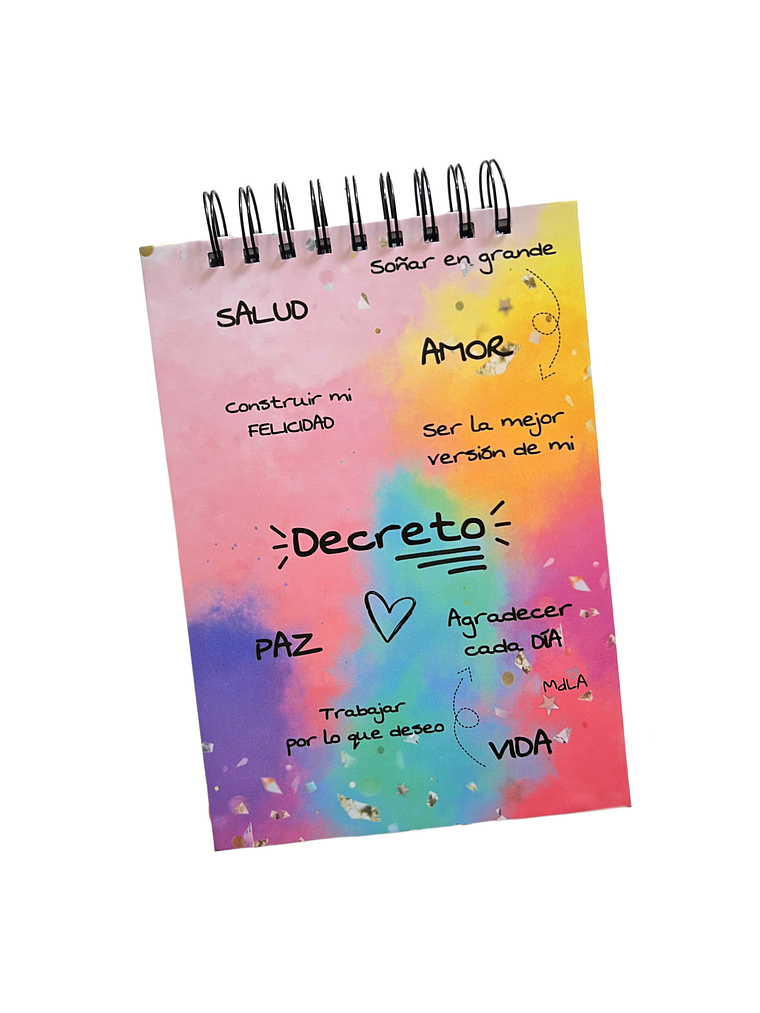 Soñar en grande
SALUD
AMOR
Construir mi
FELICIDAD
Ser la mejor
versión de mi
Decreto
Agradecer
cada DÍA
PAZ
MdLA
Trabajar
por lo que deseo
VIDA